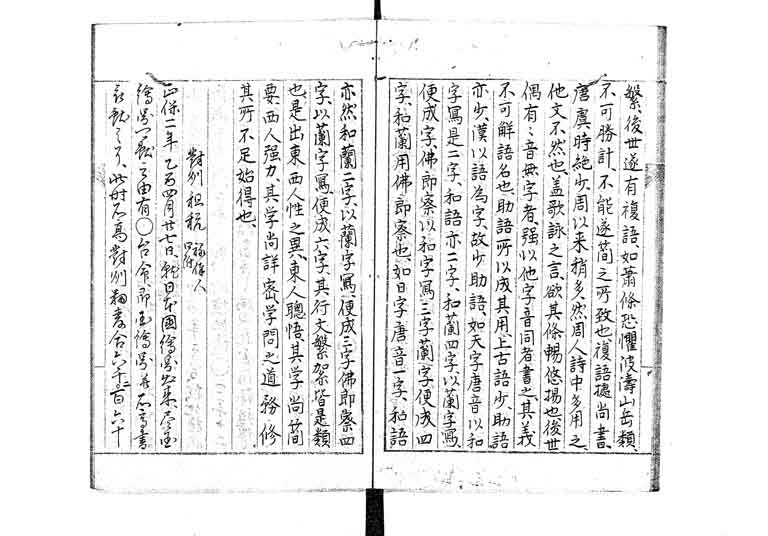 繁後世遂有複語、如蕭條恐懼波濤山岳類、
不可勝計、不能遂簡之所致也、複語據尚書、
唐虞時絶少、周以来稍多、然周人詩中多用之、
他文不然也、盖歌詠之言、欲其條暢悠揚也、後世
偶有〻音無字者、強以他字音同者書之、其義
不可解語名也、助語所以成其用、上古語少、助語
亦少、漢以語為字、故少助語、如天字唐音以和
字寫是二字、和語亦二字、和蘭四字、以蘭字寫、
便成字、佛郎察以和字寫三字、蘭字便成四
字、和蘭用佛郎察也、如日字唐音一字、和語
亦然、和蘭二字、以蘭字寫、便成三字、佛郎察四
字、以蘭字寫、便成六字、其行文繁加茶皆是類
也、是出東西人性之異、東人聰悟、其学尚簡
要、西人强力、其学尚詳密、学問之道、務修
其所不足始得也、
對州租税
正保二年乙酉四月廿七日、就日本國繪圖
繪圖
由有〇台命、即
此時石高對州
六千二百六十